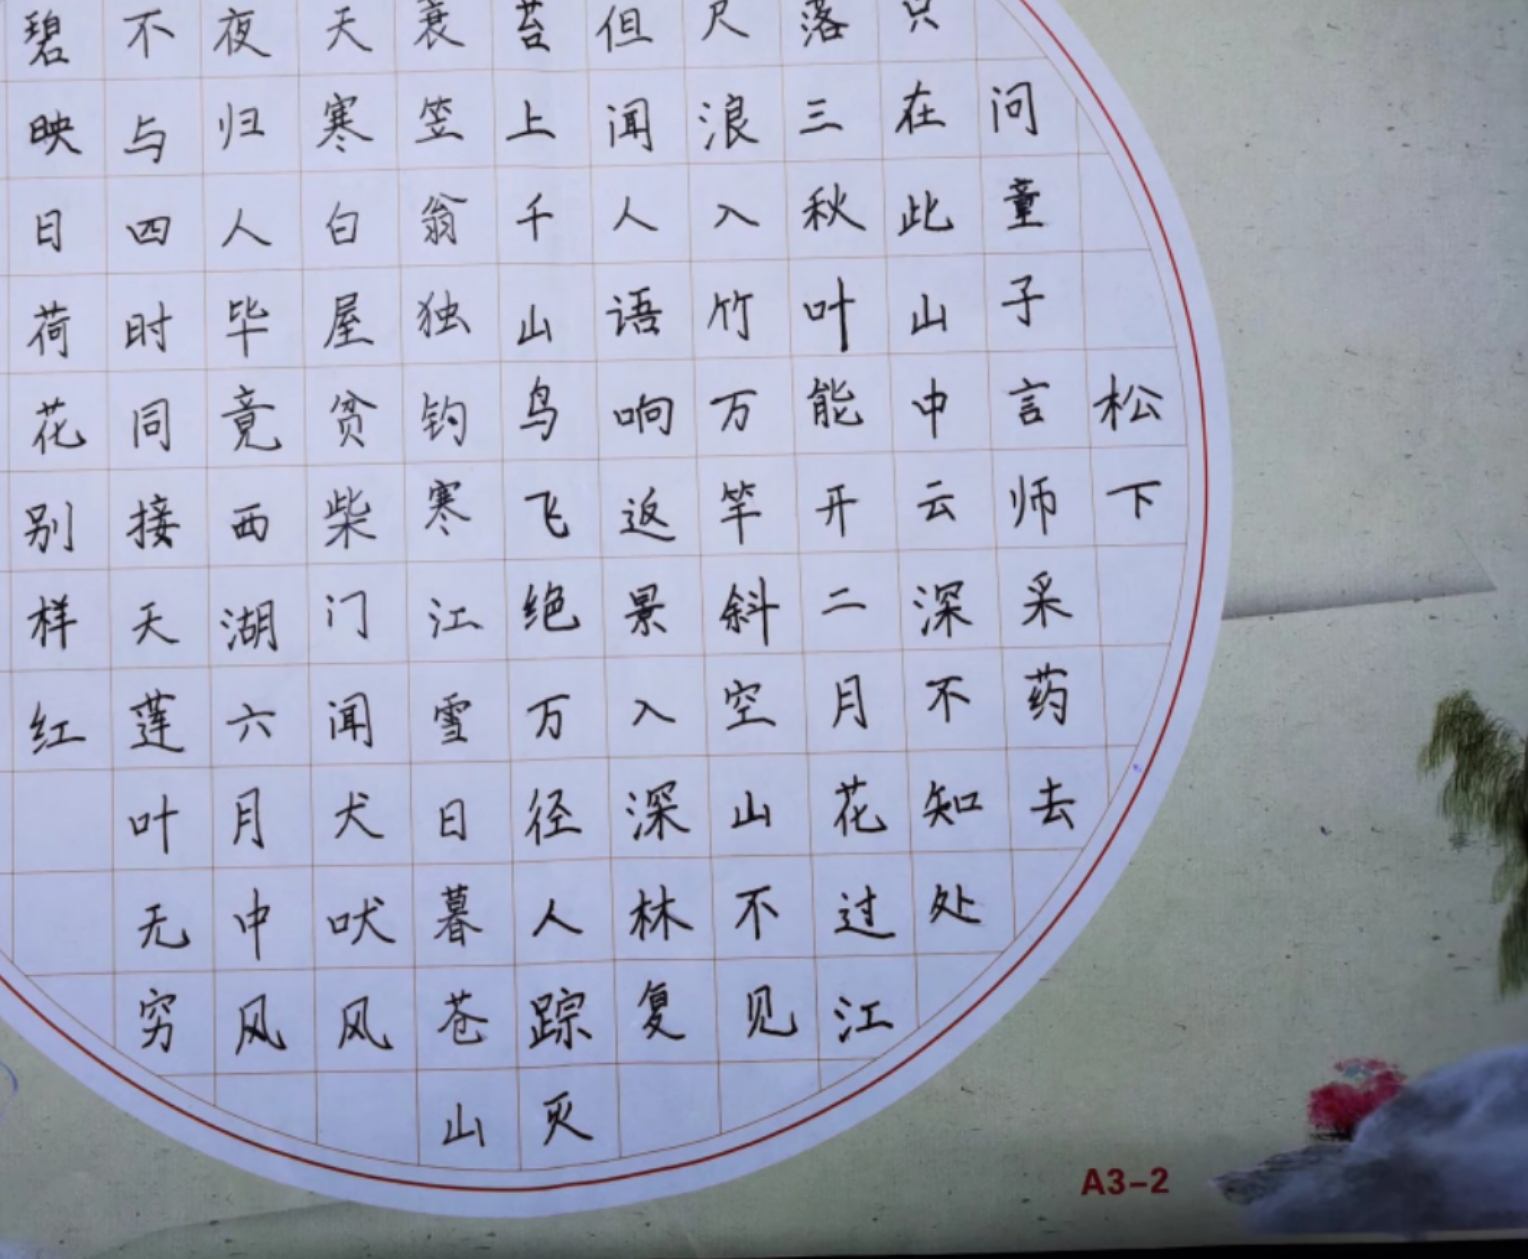 松下
问童子言师采药去
只在此山中云深不知处
落三秋叶能开二月花过江
尺浪入竹万竿斜空山不见
但闻人语响返景入深林复
苔上千山鸟飞绝万径人踪灭
蓑笠翁独钓寒江雪日暮苍山
天寒白屋贫柴门闻犬吠风
夜归人毕竟西湖六月中风
不与四时同接天莲叶无穷
碧映日荷花别样红
A3-2